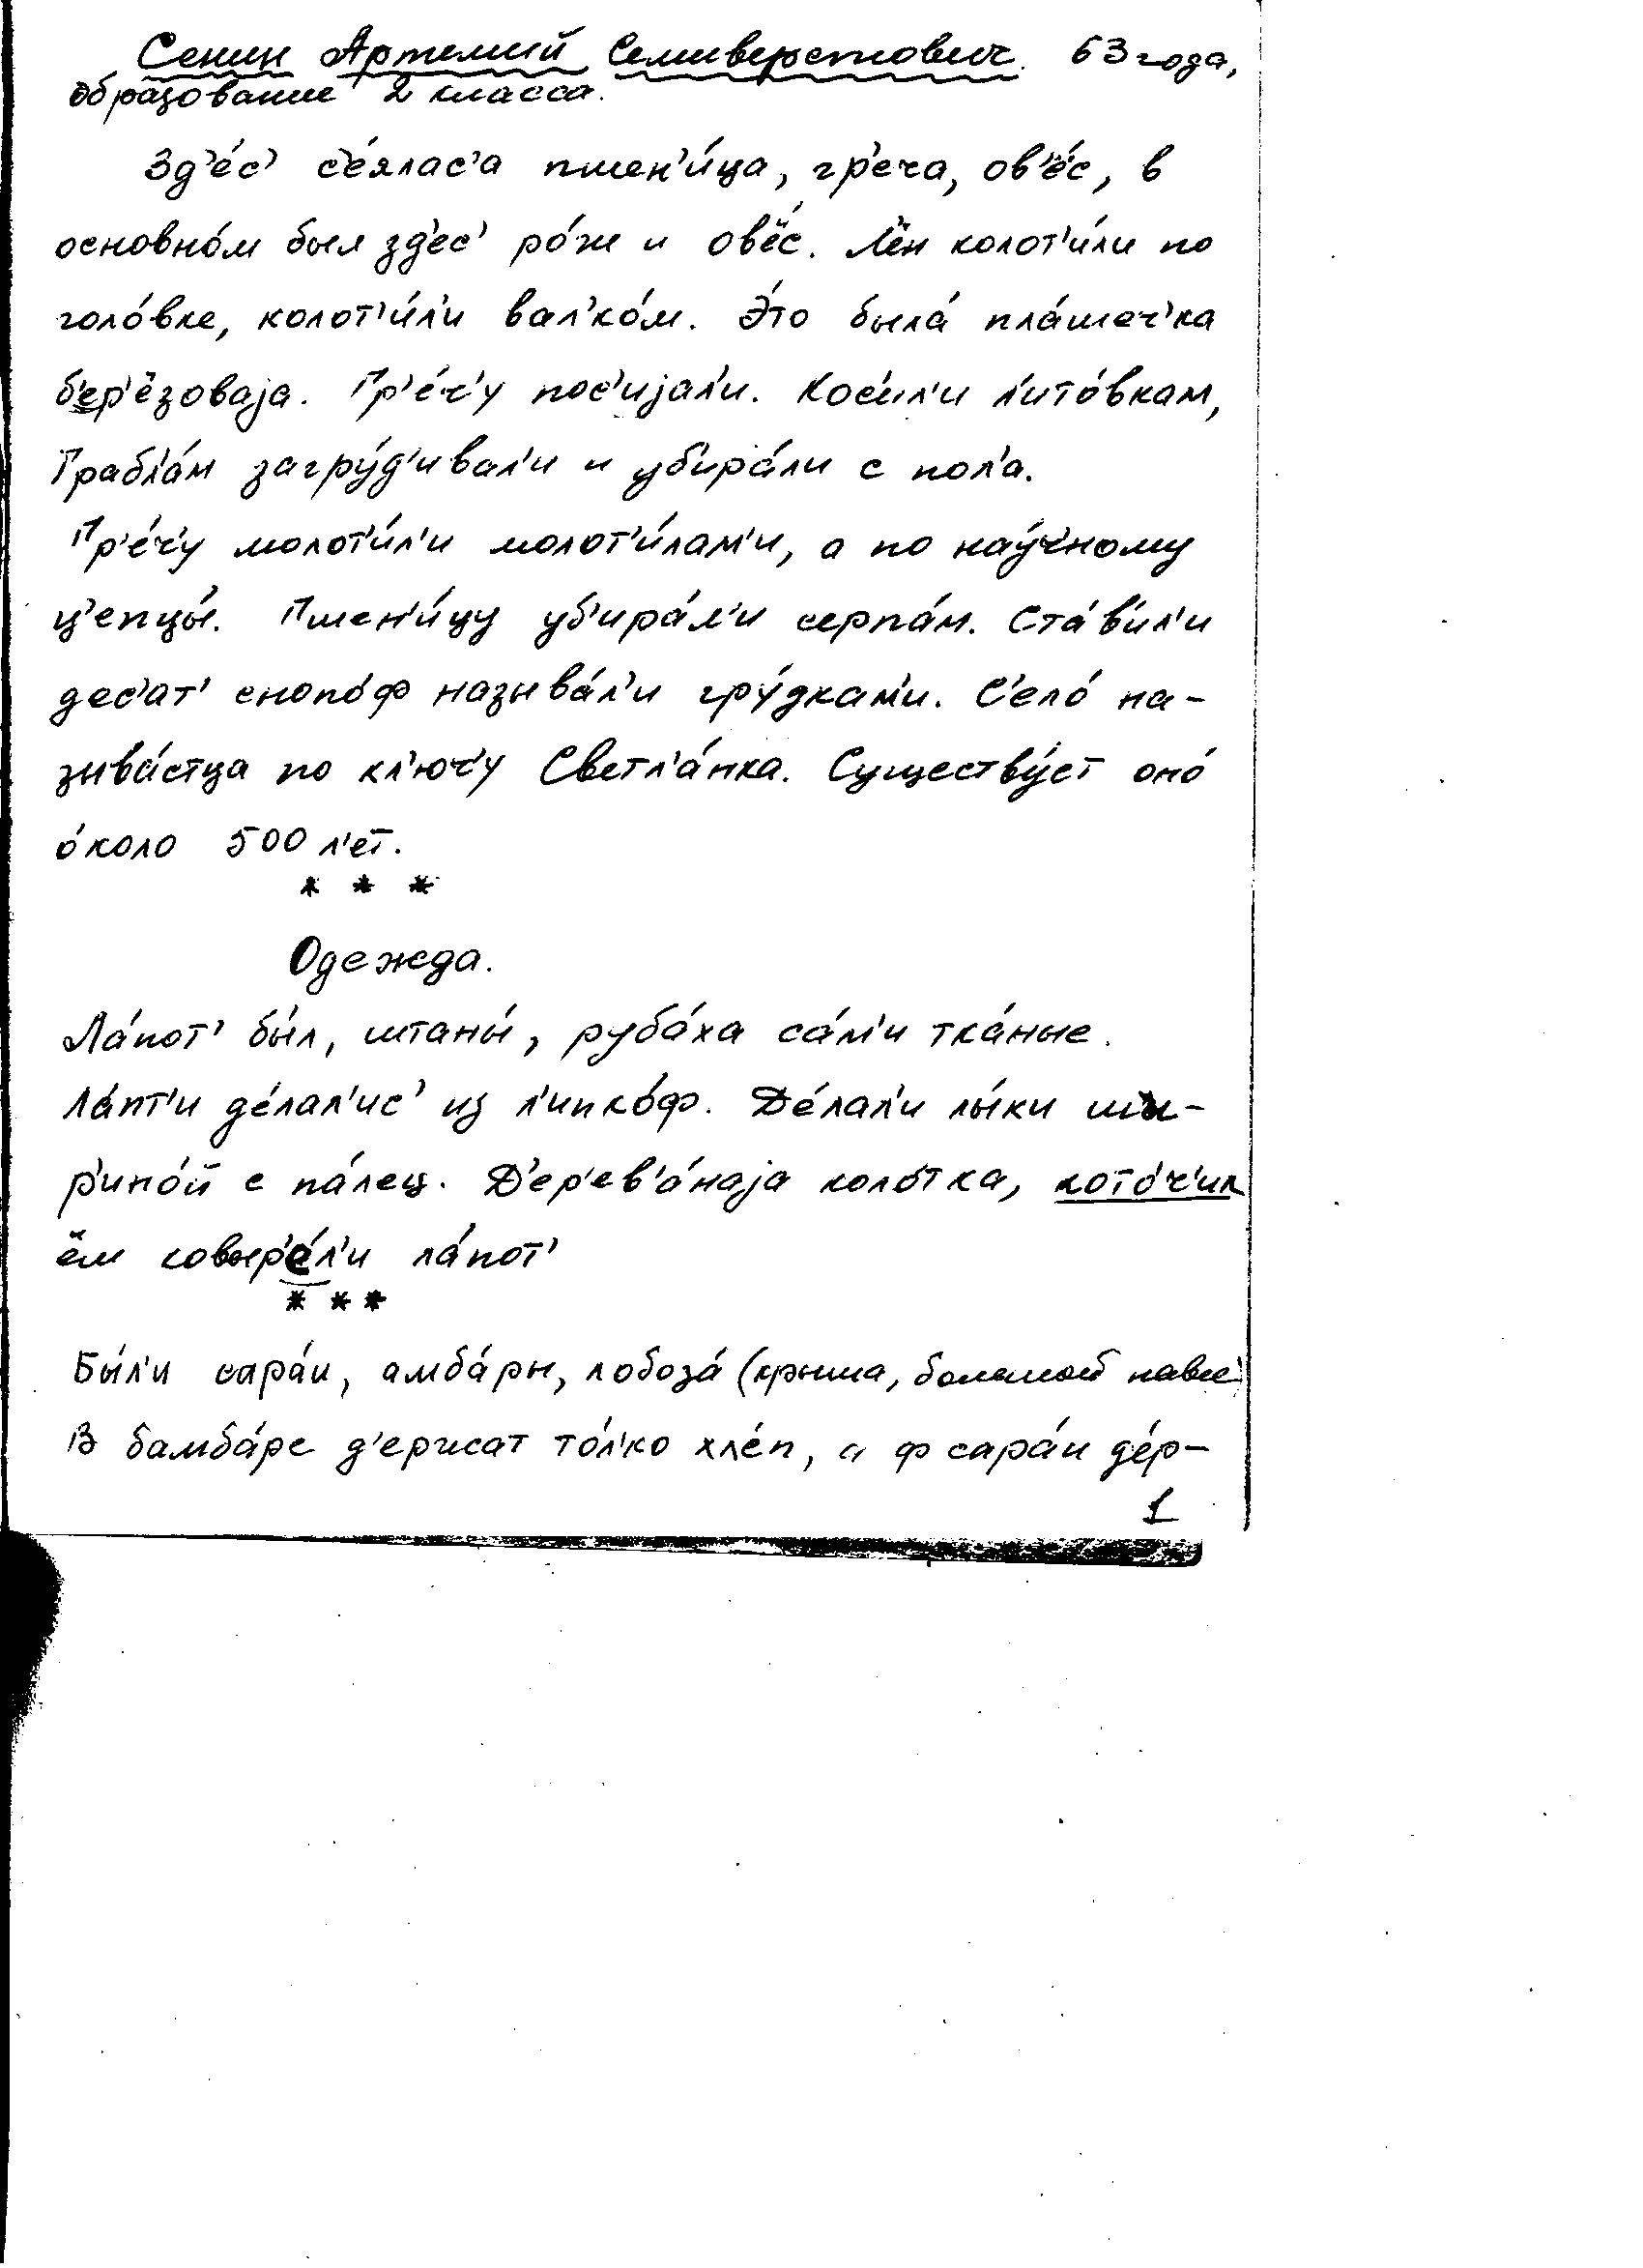 Сенин Артемий Семиверстович. 63 года,
образование 2 класса.
Зд'е́с' с'е́ялас'а пшен'и́ца, гр'еча, ов'ёс, в
основно́м был зд'ес' ро́ж и овёс. Лён колот'и́ли по
голо́вке, колот'и́л'и вал'ко́м. Э́то была́ пла́шеч'ка
б'ер'ёзоваjа. Гр'е́ч'у пос'иjал'и. Кос'и́л'и л'ито́вкам,
Грабл'а́м загру́д'ивал'и и уб'ира́ли с пол'а.
Гр'е́ч'у молот'и́л'и молот'и́лам'и, а по нау́чному
ц'епцы́. Пшен'и́цу уб'ира́л'и серпа́м. Ста́в'ил'и
дес'ат' снопо́ф называ́л'и гру́дкам'и. С'ело́ на-
зыва́етца по кл'юч'у Светл'а́нка. Существу́ет оно́
о́коло 500 л'ет.
* * *
Одежда.
Ла́пот' бы́л, штаны́, руба́ха са́м'и тка́ные.
Ла́пт'и де́лал'ис' из л'ипко́ф. Де́лал'и лы́ки ши-
р'ино́й с па́лец. Д'ер'ев'а́наjа коло́тка, кото́ч'ик
ём ковыр'е́л'и ла́пот'
* * *
Бы́л'и сара́и, амба́ры, лобоза́ (крыша, большой навес)
В бамба́ре д'ержат то́л'ко хле́п, а ф сара́и де́р-
1